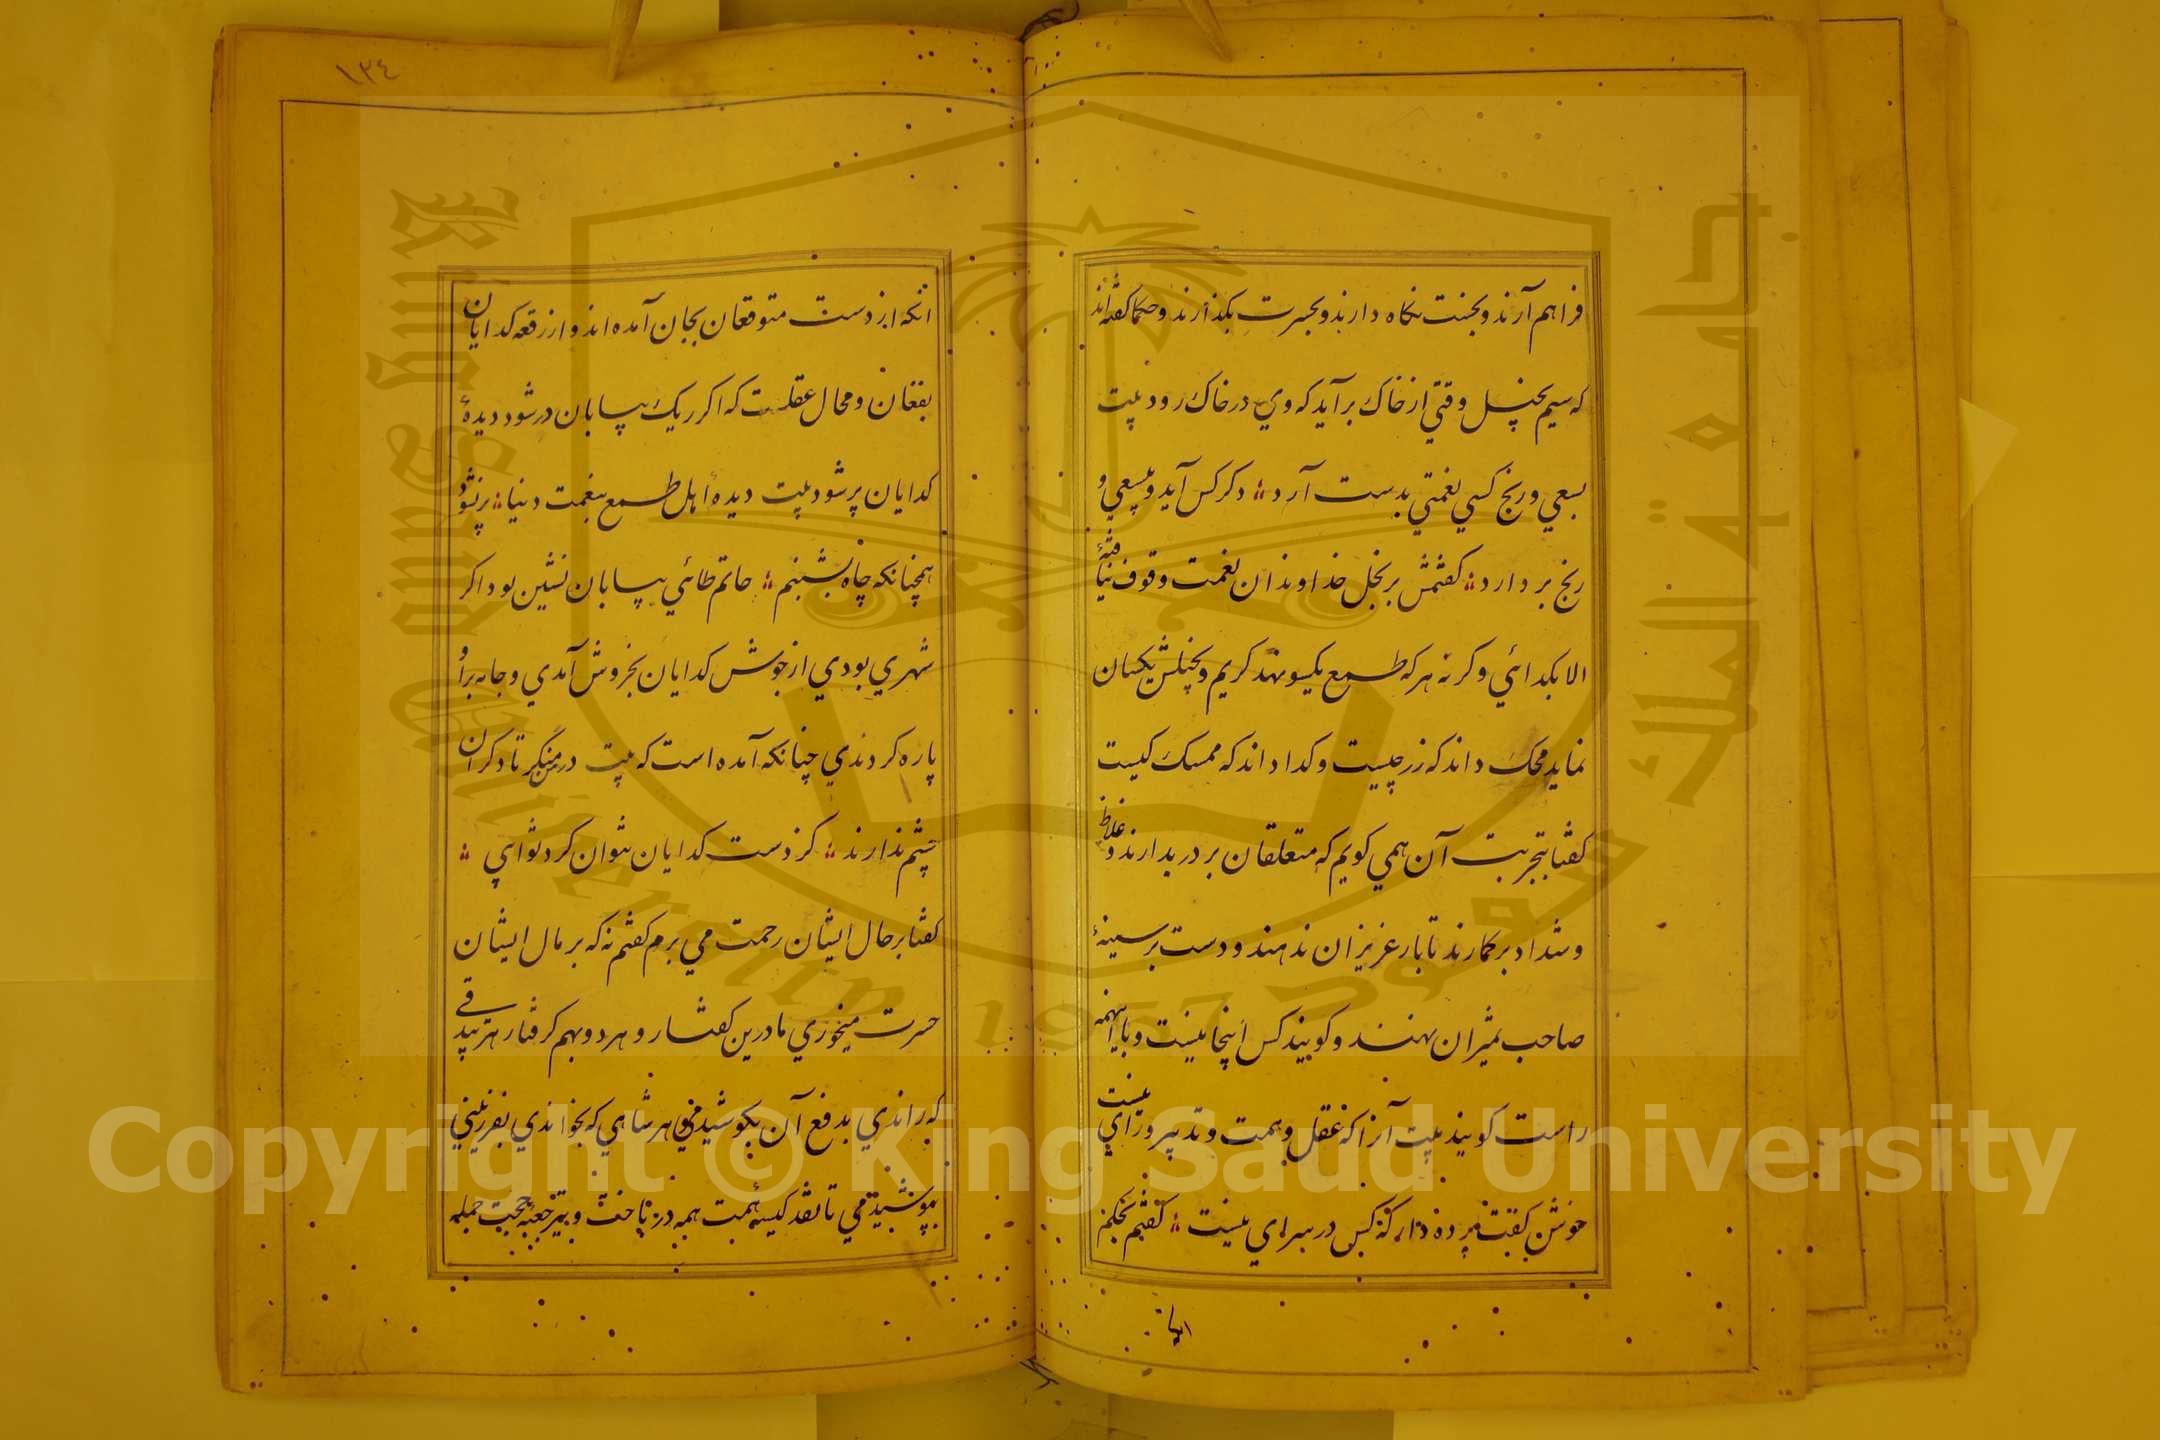 فراهم آرند و بخست نکاه دارند و بحسرت بکذارند و حکما کفته اند
که سیم بخیل وقتي از خاک برآید که وي در خاک رود بیت
بسعي و رنج کسي نعمتي بدست آرد دکر کس آید و بیسعي و
رنج بردارد کفتمش بر بخل خداوندان نعمت وقوف نیافتهٔ
الا بکدائي و کرنه هرکه طمع یکسو نهد کریم و بخیلش یکسان
نماید محک داند که زر چیست و کدا داند که ممسک کیست
کفتا بتجربت آن همي کویم که متعلقان بر در بدارند و غلاظ
و شداد برکمارند تا بار عزیزان ندهند و دست بر سینهٔ
صاحب تمیزان نهند و کویند کس اینجا نیست و با اینهمه
راست کویند بیت آنرا که عقل و همت و تدبیر و راي نیست
خوش کفت پرده دار که کس در سراي نیست کفتم بحکم
انکه
١٣٤
انکه از دست متوقعان بجان آمده اند و از رقعه کدایان
بفغان و محال عقلست که اکر ریک بیابان در شود دیدهٔ
کدایان پر شود بیت دیدهٔ اهل طمع بنعمت دنیا پر نشود
همچنانکه چاه بشبنم حاتم طائي بیابان نشین بود اکر
شهري بودي از جوش کدایان بخروش آمدي و جامه بر او
پاره کردندي چنانکه آمده است که بیت در من منکر تا دکران
چشم ندارند کز دست کدایان نتوان کرد ثوابي
کفتا بر حال ایشان رحمت مي برم کفتم نه که بر مال ایشان
حسرت میخوري ما درین کفتار و هر دو بهم کرفتار هر بیدقي
که براندي بدفع آن بکوشیدمي و هر شاهي که بخواندي بفرزیني
بپوشیدمي تا نقد کیسهٔ همت همه در باخت و تیر جعبهٔ حجت جمله
Copyright © King Saud University
King Saud University
1957
جامعة الملك سعود